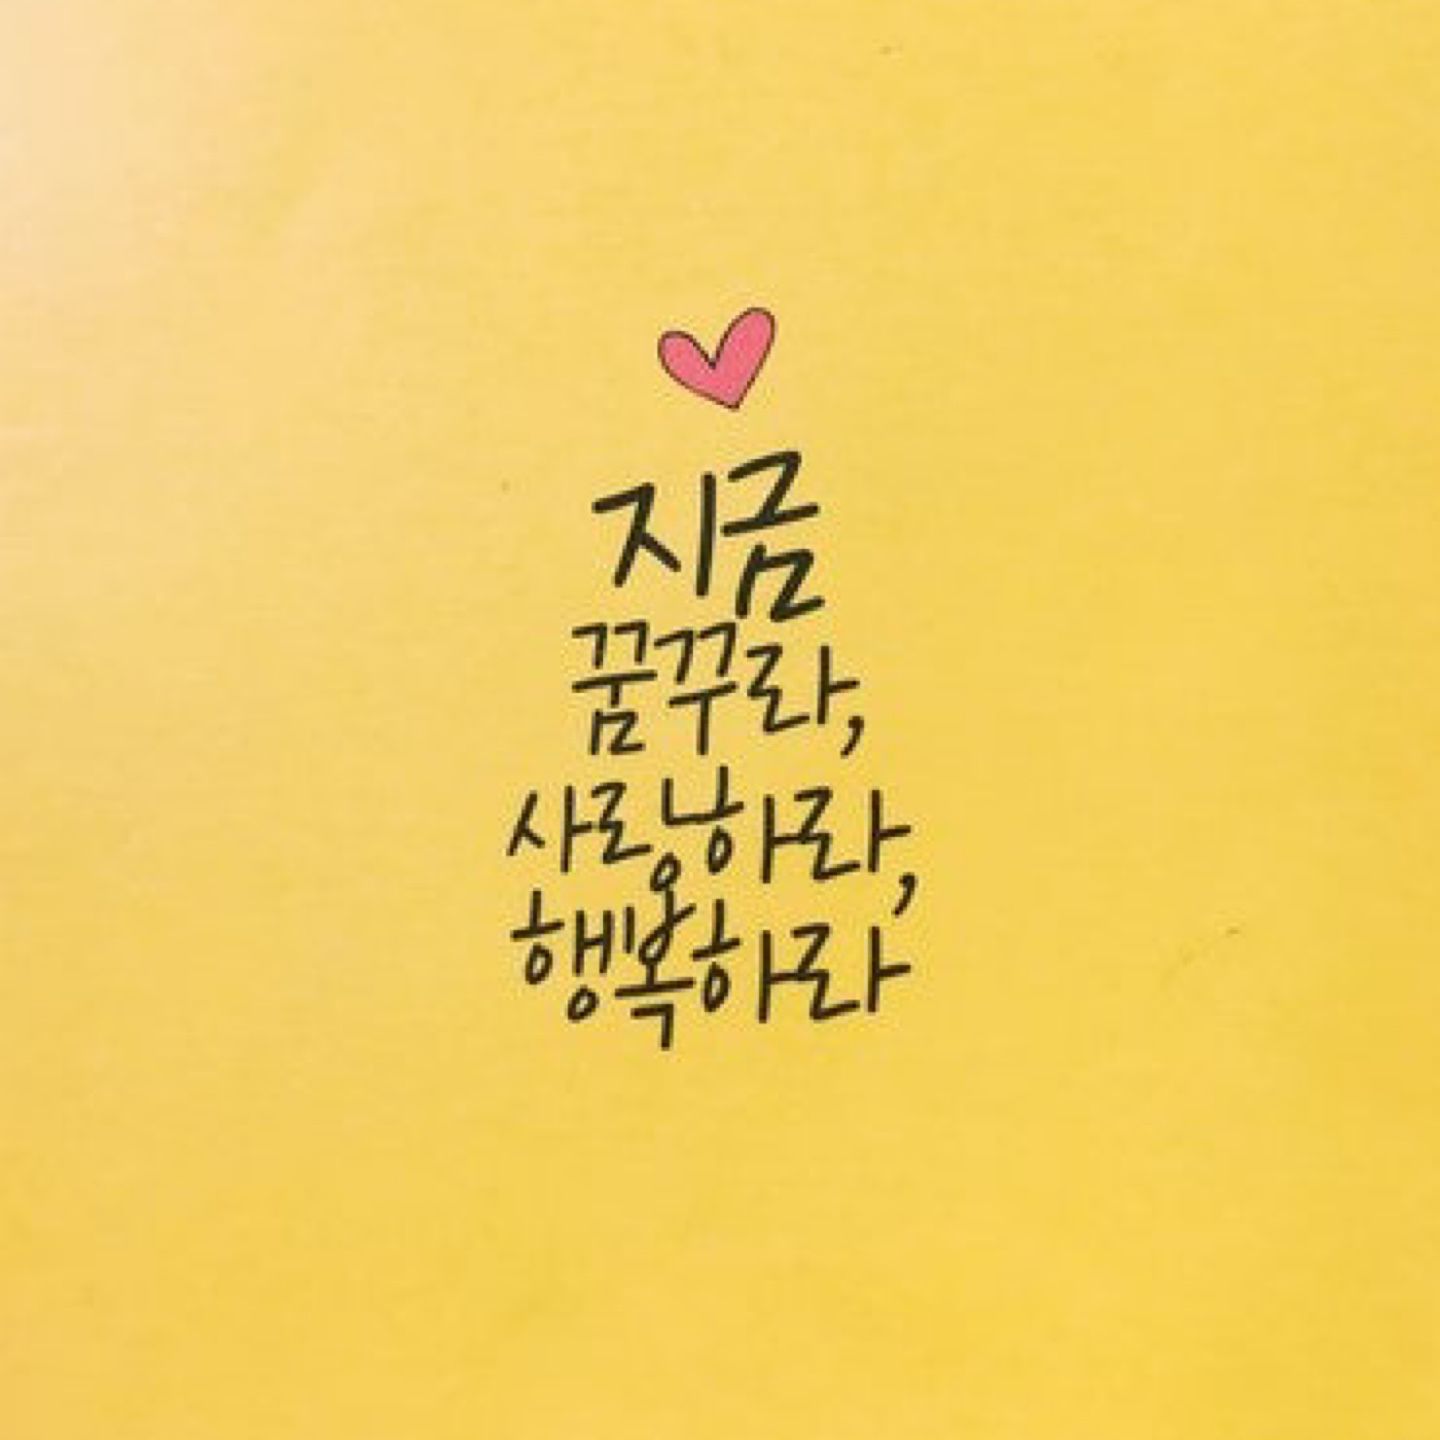 지금
꿈꾸라,
사랑하라,
행복하라